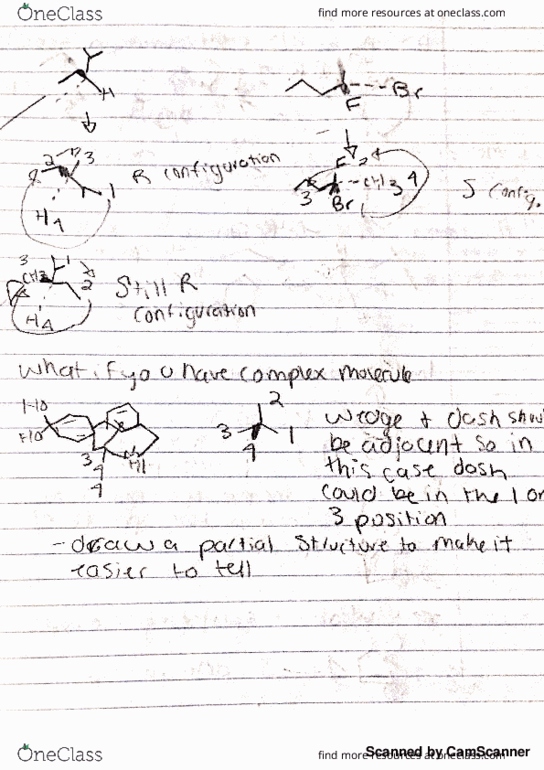 OneClass find more resources at oneclass.com
H
Br
F
2 3
1
R configuration
H 4
F 2
3 CH3 4
Br 1
S config.
3 1
CH3 2
Still R
H 4
configuration
What if you have complex molecule
HO
HO
3
4
2
3 1
4
wedge + dash shou
be adjacent so in
this case dash
could be in the 1 or
3 position
- draw a partial structure to make it
easier to tell
OneClass find more resources at oneclass.com
Scanned by CamScanner